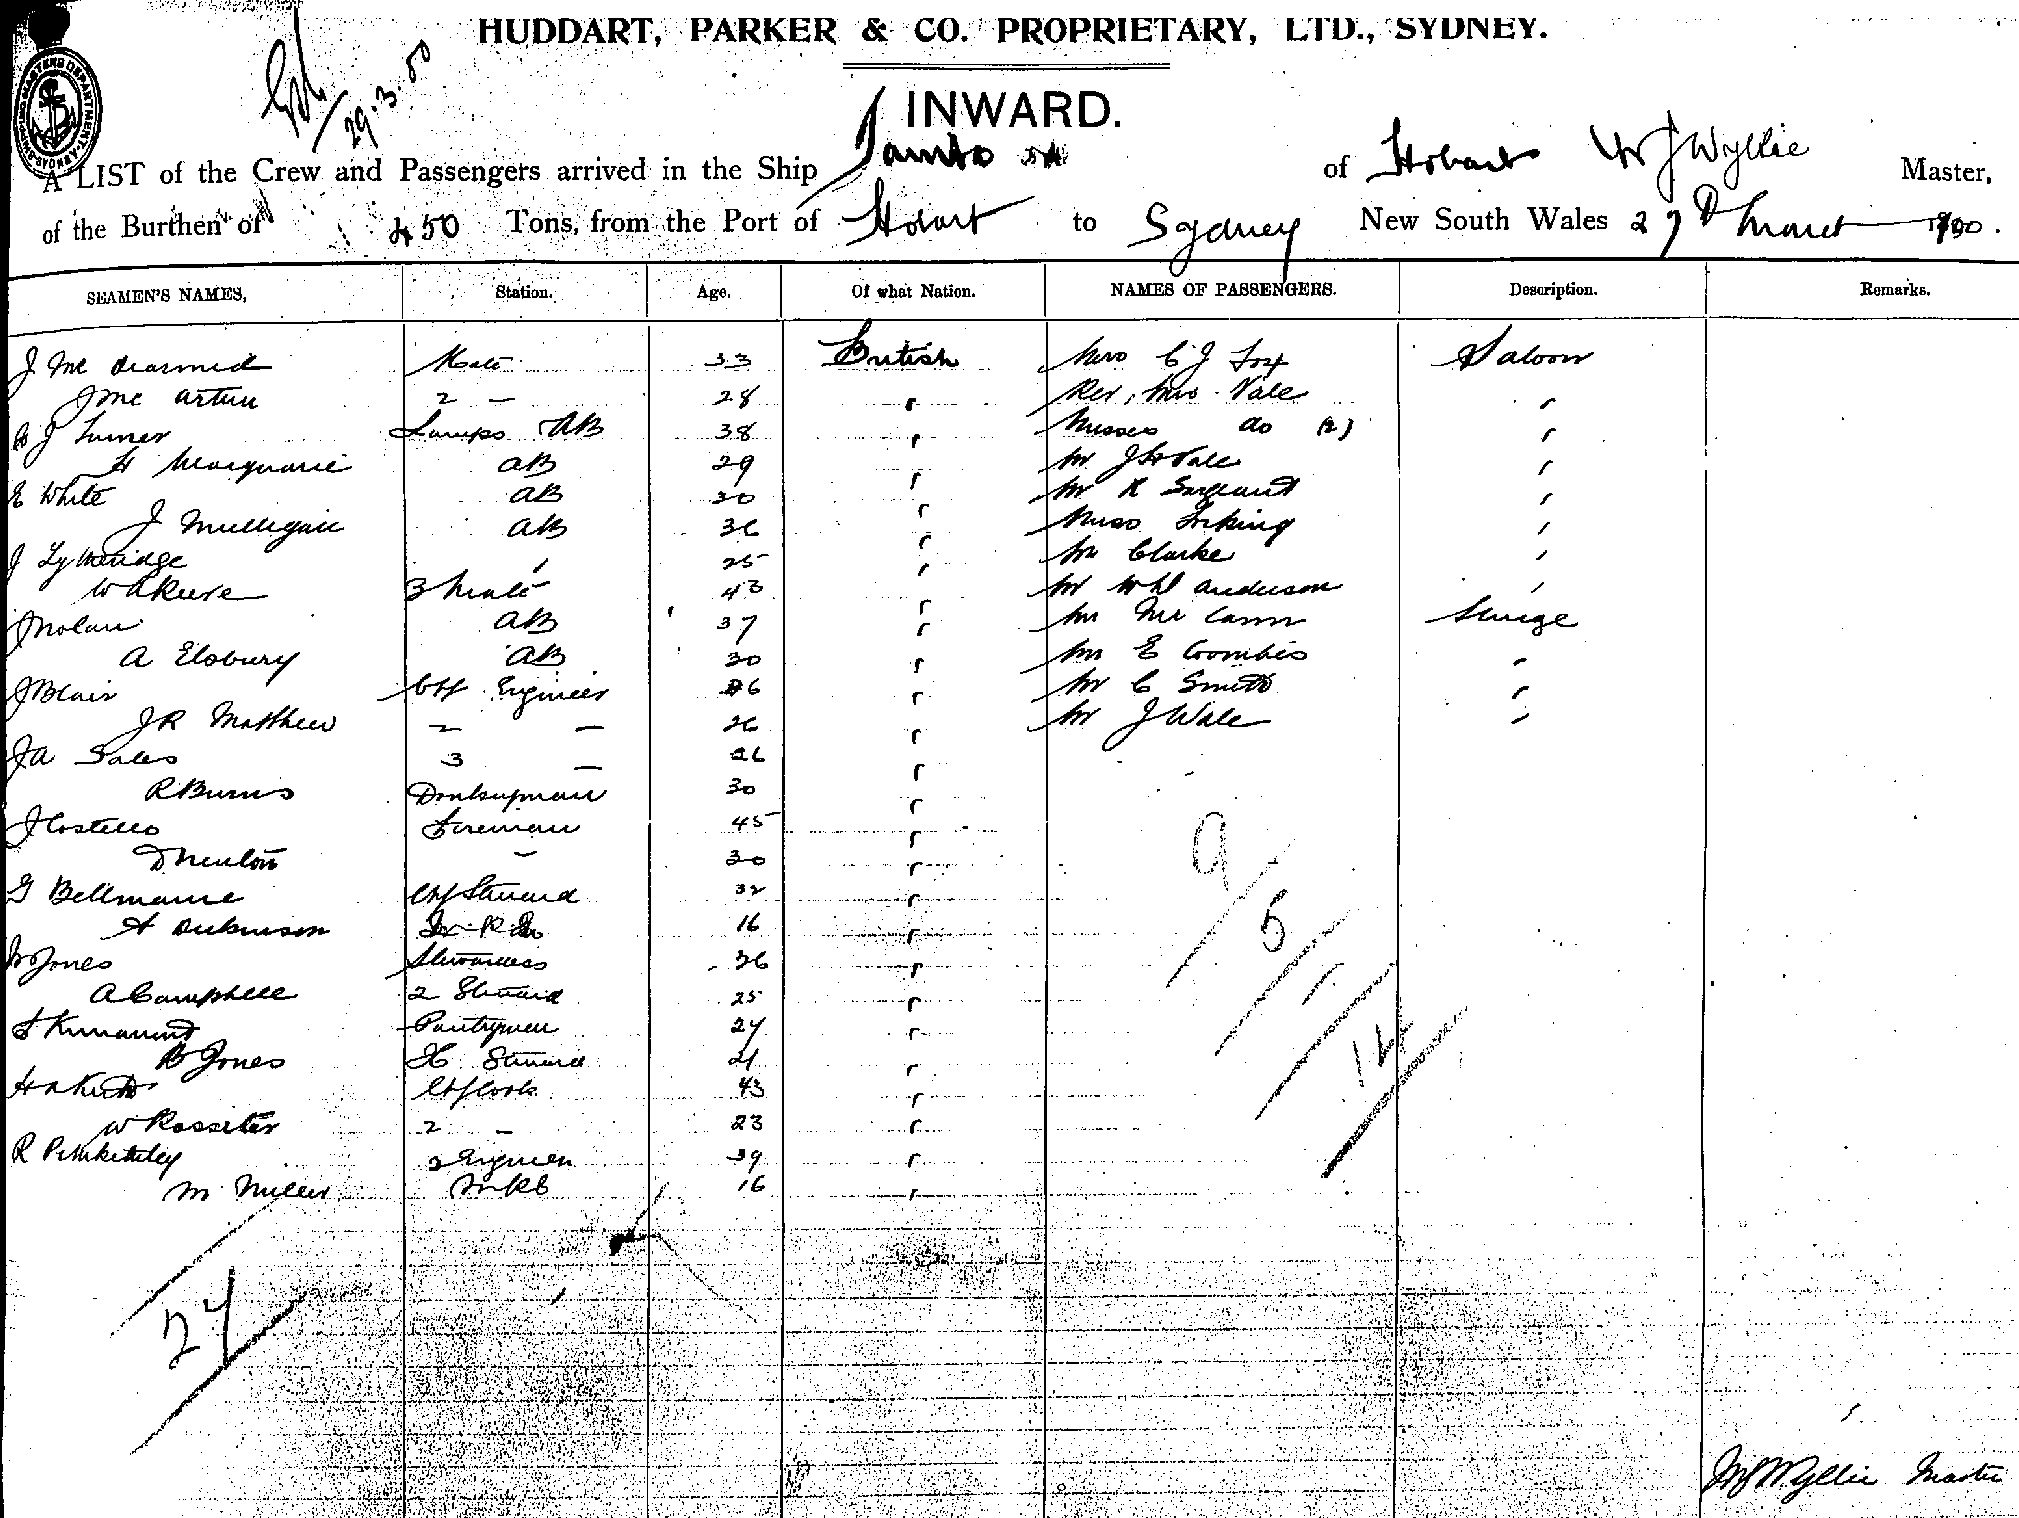 HUDDART, PARKER & CO. PROPRIETARY, LTD., SYDNEY.
29.3.00
INWARD.
A LIST of the Crew and Passengers arrived in the Ship Tambo of Hobart W J Wyllie Master,
of the Burthen of 450 Tons, from the Port of Hobart to Sydney New South Wales 27th March 1900.
SEAMEN'S NAMES, Station. Age. Of what Nation. NAMES OF PASSENGERS. Description. Remarks.
J Mc Diarmid Mate 33 British Mrs C J Fox Saloon
J Mc Arthur 2 — 28 " Rev, Mrs Vale "
J Turner Lamps AB 38 " Misses do (2) "
H Macquarie AB 29 " Mr J H Vale "
E White AB 30 " Mr R Sargeant "
J Mulligan AB 36 " Miss "
J 25 " Mr Clarke "
W A Reeve 3 Mate 43 " Mr Anderson "
J Nolan AB 37 " Mr Mc Cann Steerge
A Elsbury AB 30 " Mr E Coombes "
J Blair Chf Engineer 36 " Mr C Smith "
J R Matthew 2 — 26 " Mr J Wale "
J A Sales 3 — 26 "
R Burns Donkeyman 30 "
J Costello Fireman 45 "
D Newton — 30 "
G Bellmaine Chf Steward 32 "
H Dickinson 16 "
Jones Stewardess 36 "
A Campbell 2 Steward 25 "
Pantryman 24 "
B Jones Steward 21 "
Chf Cook 43 "
W Rossiter 2 — 23 "
R Pemkethley 2 Engineer 39 "
M Miller 16 "
9
5
14
27
W J Wyllie Master